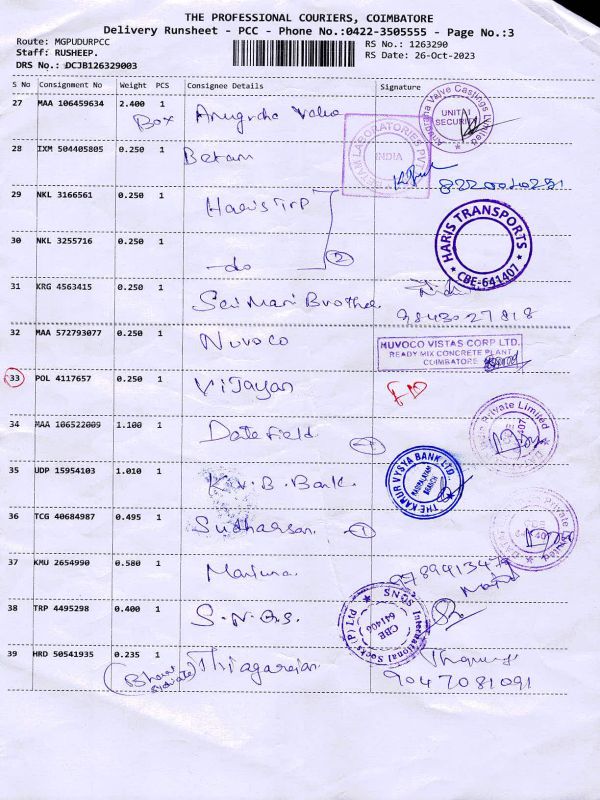 THE PROFESSIONAL COURIERS, COIMBATORE
Delivery Runsheet - PCC - Phone No.:0422-3505555 - Page No.:3
Route: MGPUDURPCC
RS No.: 1263290
Staff: RUSHEEP.
RS Date: 26-Oct-2023
DRS No.: DCJB126329003
S No Consignment No Weight PCS Consignee Details Signature
27 MAA 106459634 2.400 1 Anugraha Valve
Box
Anugraha Valve Castings Limited
UNIT I
SECURITY
28 IXM 504405805 0.250 1 Betam
LABORATORIES PVT
INDIA
29 NKL 3166561 0.250 1 Haris TrP
30 NKL 3255716 0.250 1 - do
2
HARIS TRANSPORTS
CBE-641407
31 KRG 4563415 0.250 1 Sri Mari Brother
9843027818
32 MAA 572793077 0.250 1 Nuvoco
NUVOCO VISTAS CORP LTD.
READY MIX CONCRETE PLANT
COIMBATORE
33 POL 4117657 0.250 1 Vijayan
34 MAA 106522009 1.100 1 Date field
Private Limited
35 UDP 15954103 1.010 1 K.V.B. Bank
THE KARUR VYSYA BANK LTD.
BRANCH
36 TCG 40684987 0.495 1 Sudharsan
Private Limited
37 KMU 2654990 0.580 1
38 TRP 4495298 0.400 1 S.N.Q.S.
SQNS International Socks (P) Ltd
CBE
641406
39 HRD 50541935 0.235 1 Thiagarajan
9047081091